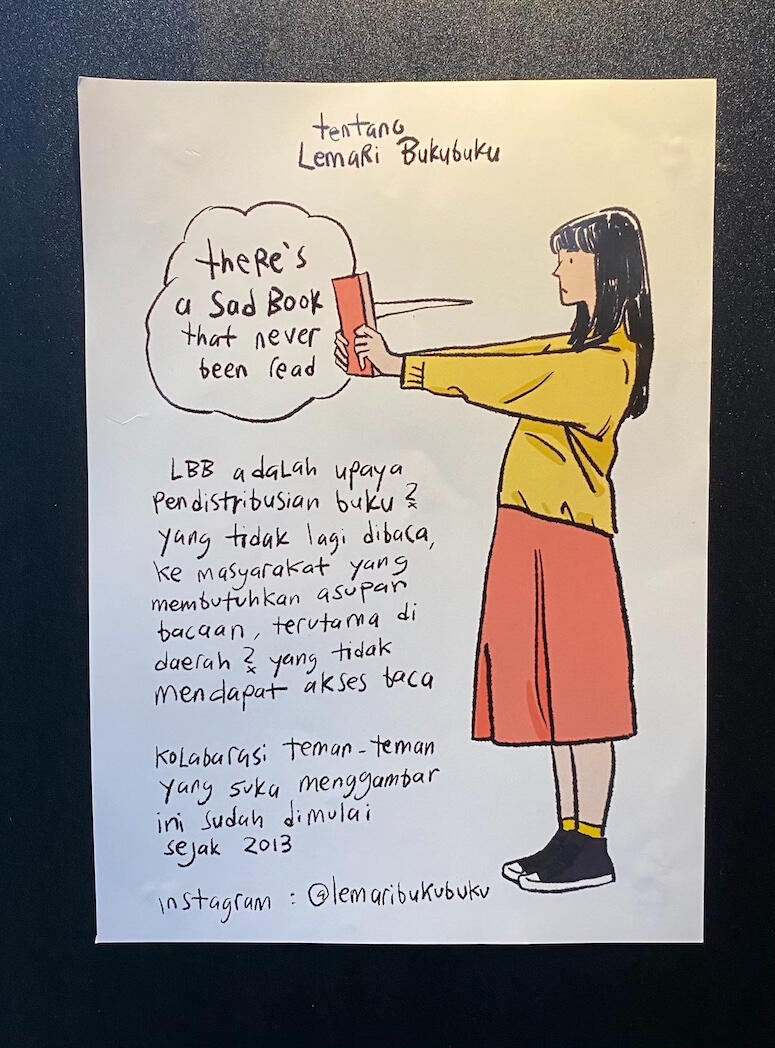 tentang
Lemari Bukubuku
there's
a sad Book
that never
been read
LBB adalah upaya
pendistribusian buku 2x
yang tidak lagi dibaca,
ke masyarakat yang
membutuhkan asupan
bacaan, terutama di
daerah 2x yang tidak
mendapat akses baca
kolabarasi teman-teman
yang suka menggambar
ini sudah dimulai
sejak 2013
instagram : @lemaribukubuku